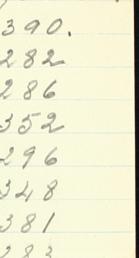 390.
282
286
352
296
348
381
283